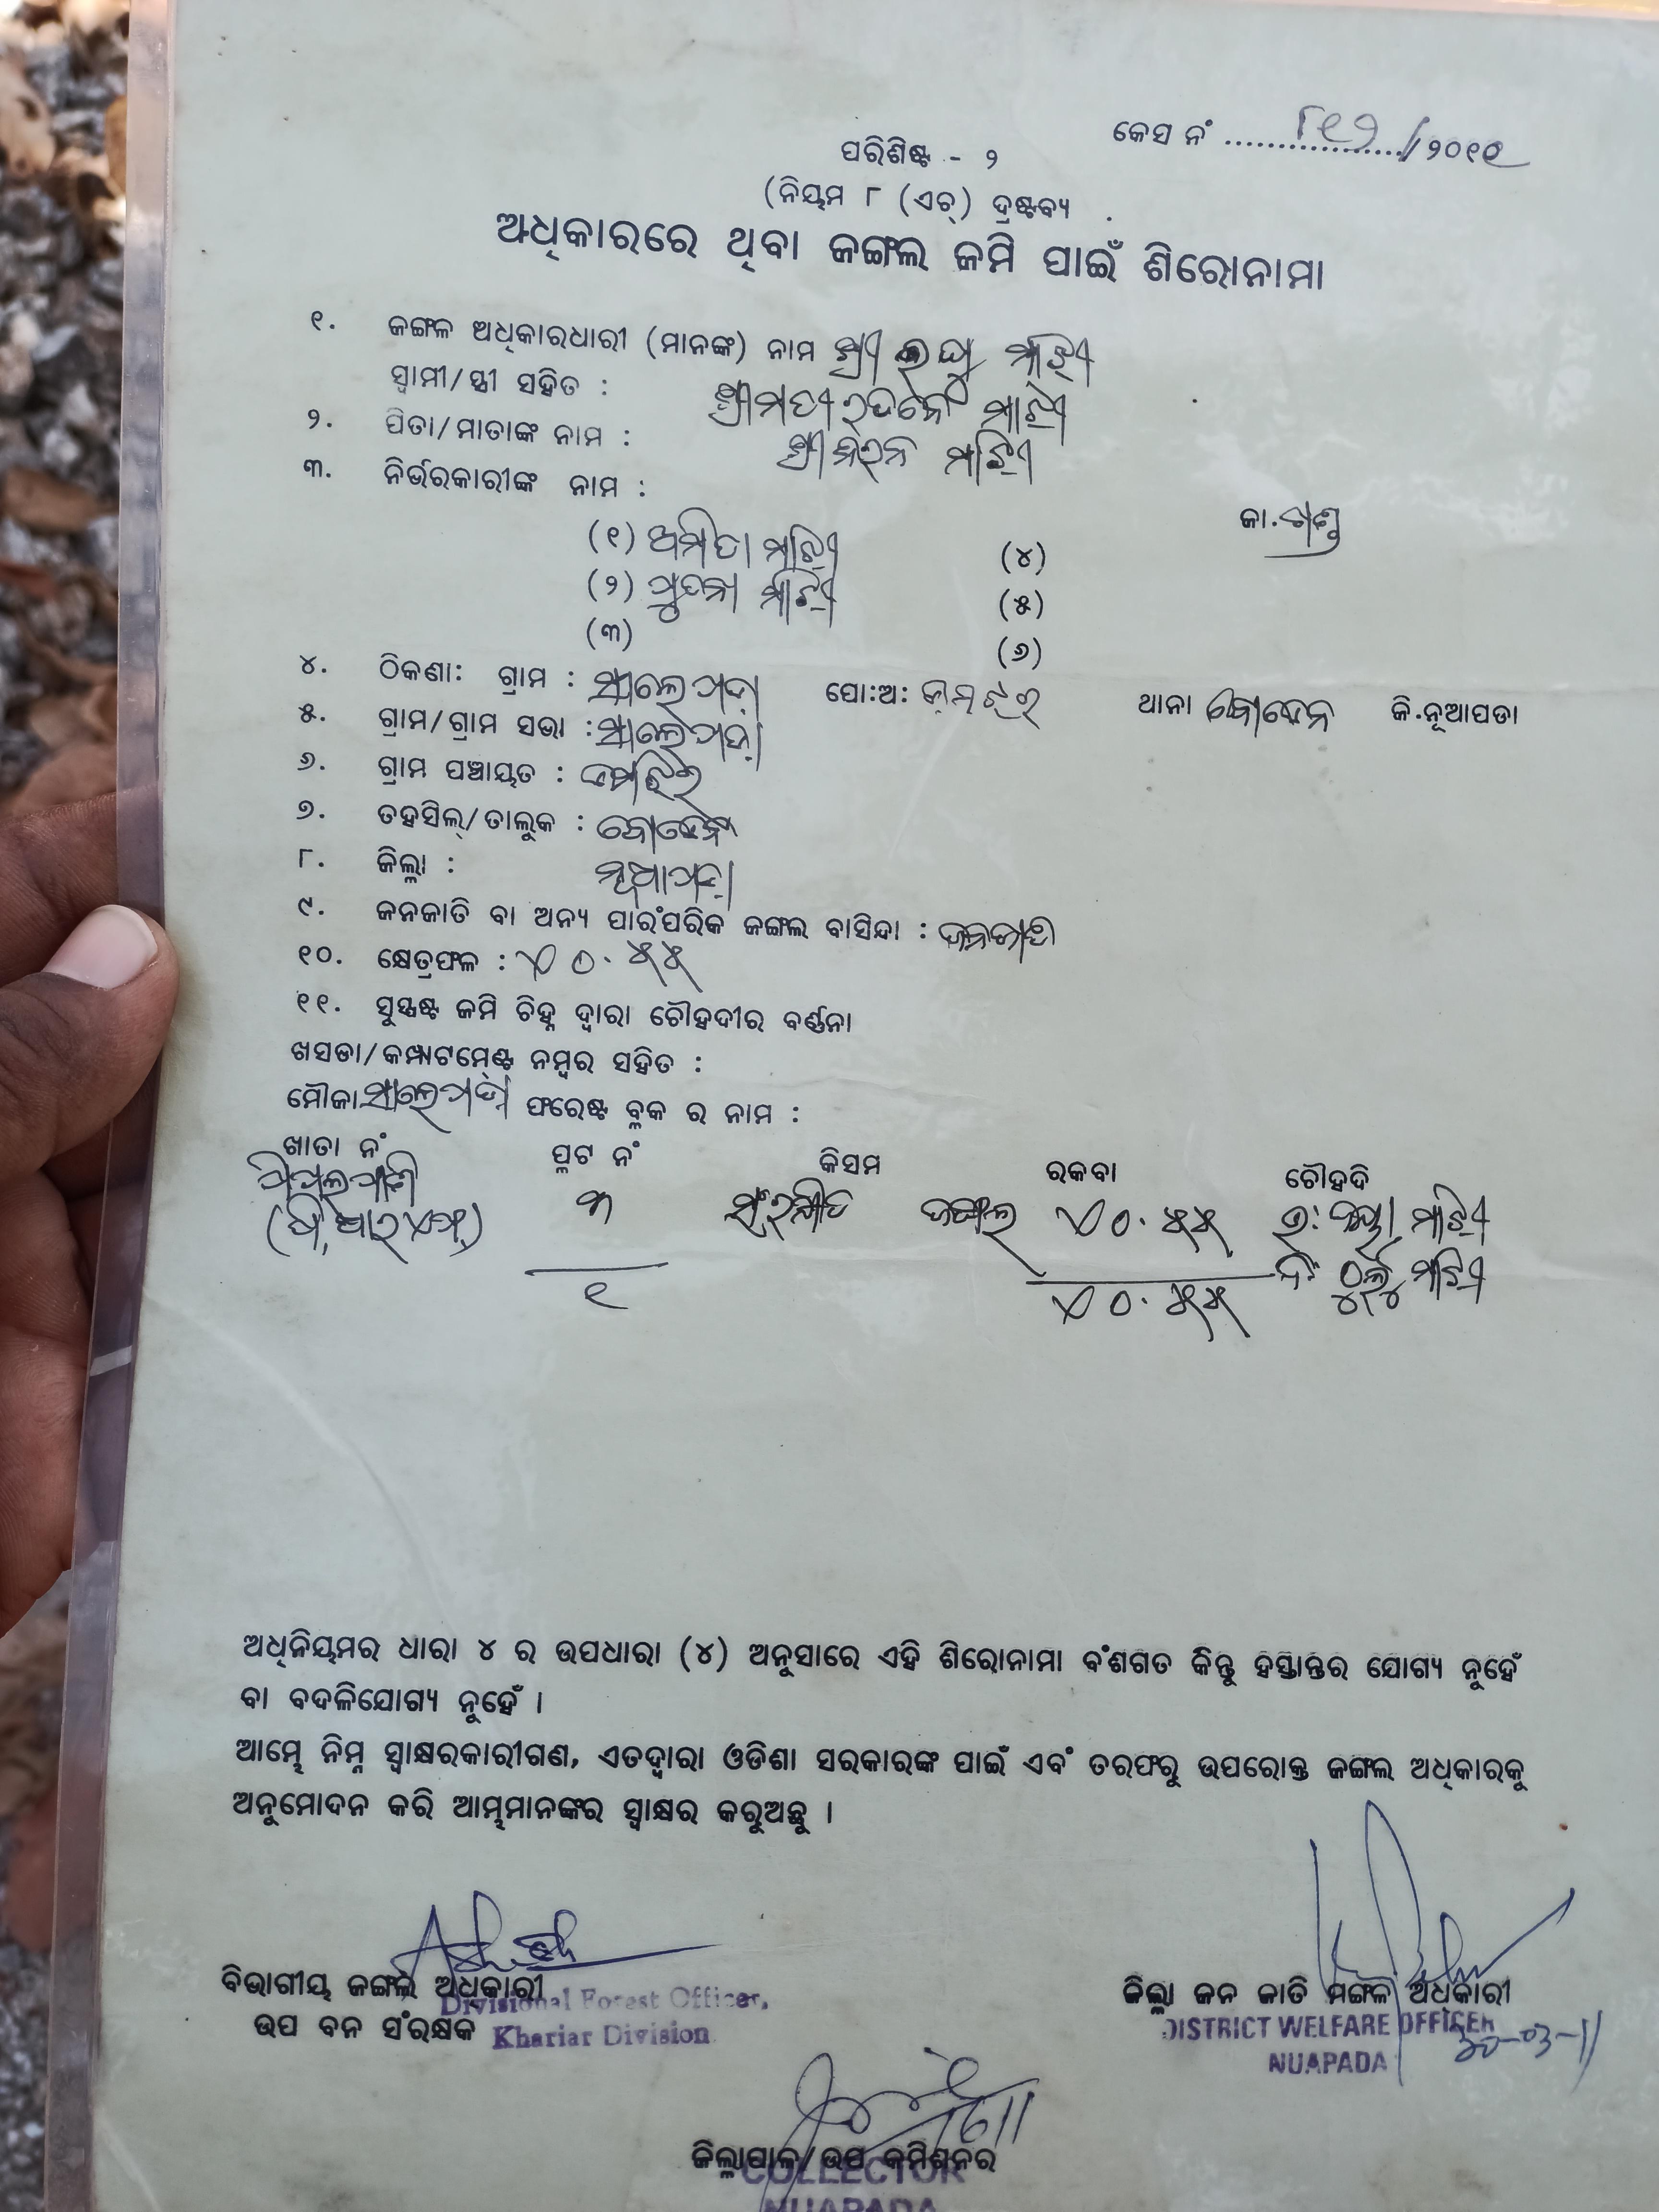 କେସ ନଂ ୮୧୨/୨୦୧୧
ପରିଶିଷ୍ଟ - ୨
(ନିୟମ ୮ (ଏଚ୍) ଦ୍ରଷ୍ଟବ୍ୟ
ଅଧିକାରରେ ଥିବା ଜଙ୍ଗଲ ଜମି ପାଇଁ ଶିରୋନାମା
୧. ଜଙ୍ଗଲ ଅଧିକାରଧାରୀ (ମାନଙ୍କ) ନାମ ଶ୍ରୀ ମାଝୀ
ସ୍ୱାମୀ/ସ୍ତ୍ରୀ ସହିତ : ଶ୍ରୀମତୀ ମାଝୀ
୨. ପିତା/ମାତାଙ୍କ ନାମ : ଶ୍ରୀ ମାଝୀ
୩. ନିର୍ଭରକାରୀଙ୍କ ନାମ :
ଜା.ଖଣ୍ଡ
(୧) ଅମିତା ମାଝୀ (୪)
(୨) ମାଝୀ (୫)
(୩) (୬)
୪. ଠିକଣା: ଗ୍ରାମ : ସାଲେପଡ଼ା ପୋ:ଅ: ଥାନା ବୋଡେନ ଜି.ନୂଆପଡା
୫. ଗ୍ରାମ/ଗ୍ରାମ ସଭା : ସାଲେପଡ଼ା
୬. ଗ୍ରାମ ପଞ୍ଚାୟତ :
୭. ତହସିଲ୍/ତାଲୁକ : ବୋଡେନ
୮. ଜିଲ୍ଲା : ନୂଆପଡ଼ା
୯. ଜନଜାତି ବା ଅନ୍ୟ ପାରଂପରିକ ଜଙ୍ଗଲ ବାସିନ୍ଦା : ଜନଜାତି
୧୦. କ୍ଷେତ୍ରଫଳ : ଏ ୦.୫୫
୧୧. ସୁସ୍ପଷ୍ଟ ଜମି ଚିହ୍ନ ଦ୍ୱାରା ଚୌହଦୀର ବର୍ଣ୍ଣନା
ଖସଡା/କମ୍ପାଟମେଣ୍ଟ ନମ୍ବର ସହିତ :
ମୌଜା ସାଲେପଡ଼ା ଫରେଷ୍ଟ ବ୍ଲକ ର ନାମ :
ଖାତା ନଂ ପ୍ଳଟ ନଂ କିସମ ରକବା ଚୌହଦି
ପିପଲପାନି ୩ ସଂରକ୍ଷିତ ଜଙ୍ଗଲ ଏ ୦.୫୫ ଉ: ମାଝୀ
(ପି,ଆର ଏଫ୍) ଦ: ମାଝୀ
୧ ଏ ୦.୫୫
ଅଧିନିୟମର ଧାରା ୪ ର ଉପଧାରା (୪) ଅନୁସାରେ ଏହି ଶିରୋନାମା ବଂଶଗତ କିନ୍ତୁ ହସ୍ତାନ୍ତର ଯୋଗ୍ୟ ନୁହେଁ
ବା ବଦଳିଯୋଗ୍ୟ ନୁହେଁ ।
ଆମ୍ଭେ ନିମ୍ନ ସ୍ୱାକ୍ଷରକାରୀଗଣ, ଏତଦ୍ୱାରା ଓଡିଶା ସରକାରଙ୍କ ପାଇଁ ଏବଂ ତରଫରୁ ଉପରୋକ୍ତ ଜଙ୍ଗଲ ଅଧିକାରକୁ
ଅନୁମୋଦନ କରି ଆମ୍ଭମାନଙ୍କର ସ୍ୱାକ୍ଷର କରୁଅଛୁ ।
ବିଭାଗୀୟ ଜଙ୍ଗଲ ଅଧିକାରୀ
ଉପ ବନ ସଂରକ୍ଷକ
Divisional Forest Officer,
Khariar Division
ଜିଲ୍ଲା ଜନ ଜାତି ମଙ୍ଗଳ ଅଧିକାରୀ
DISTRICT WELFARE OFFICER
NUAPADA
30-03-11
ଜିଲ୍ଲାପାଳ/ଉପ କମିଶନର
COLLECTOR
NUAPADA